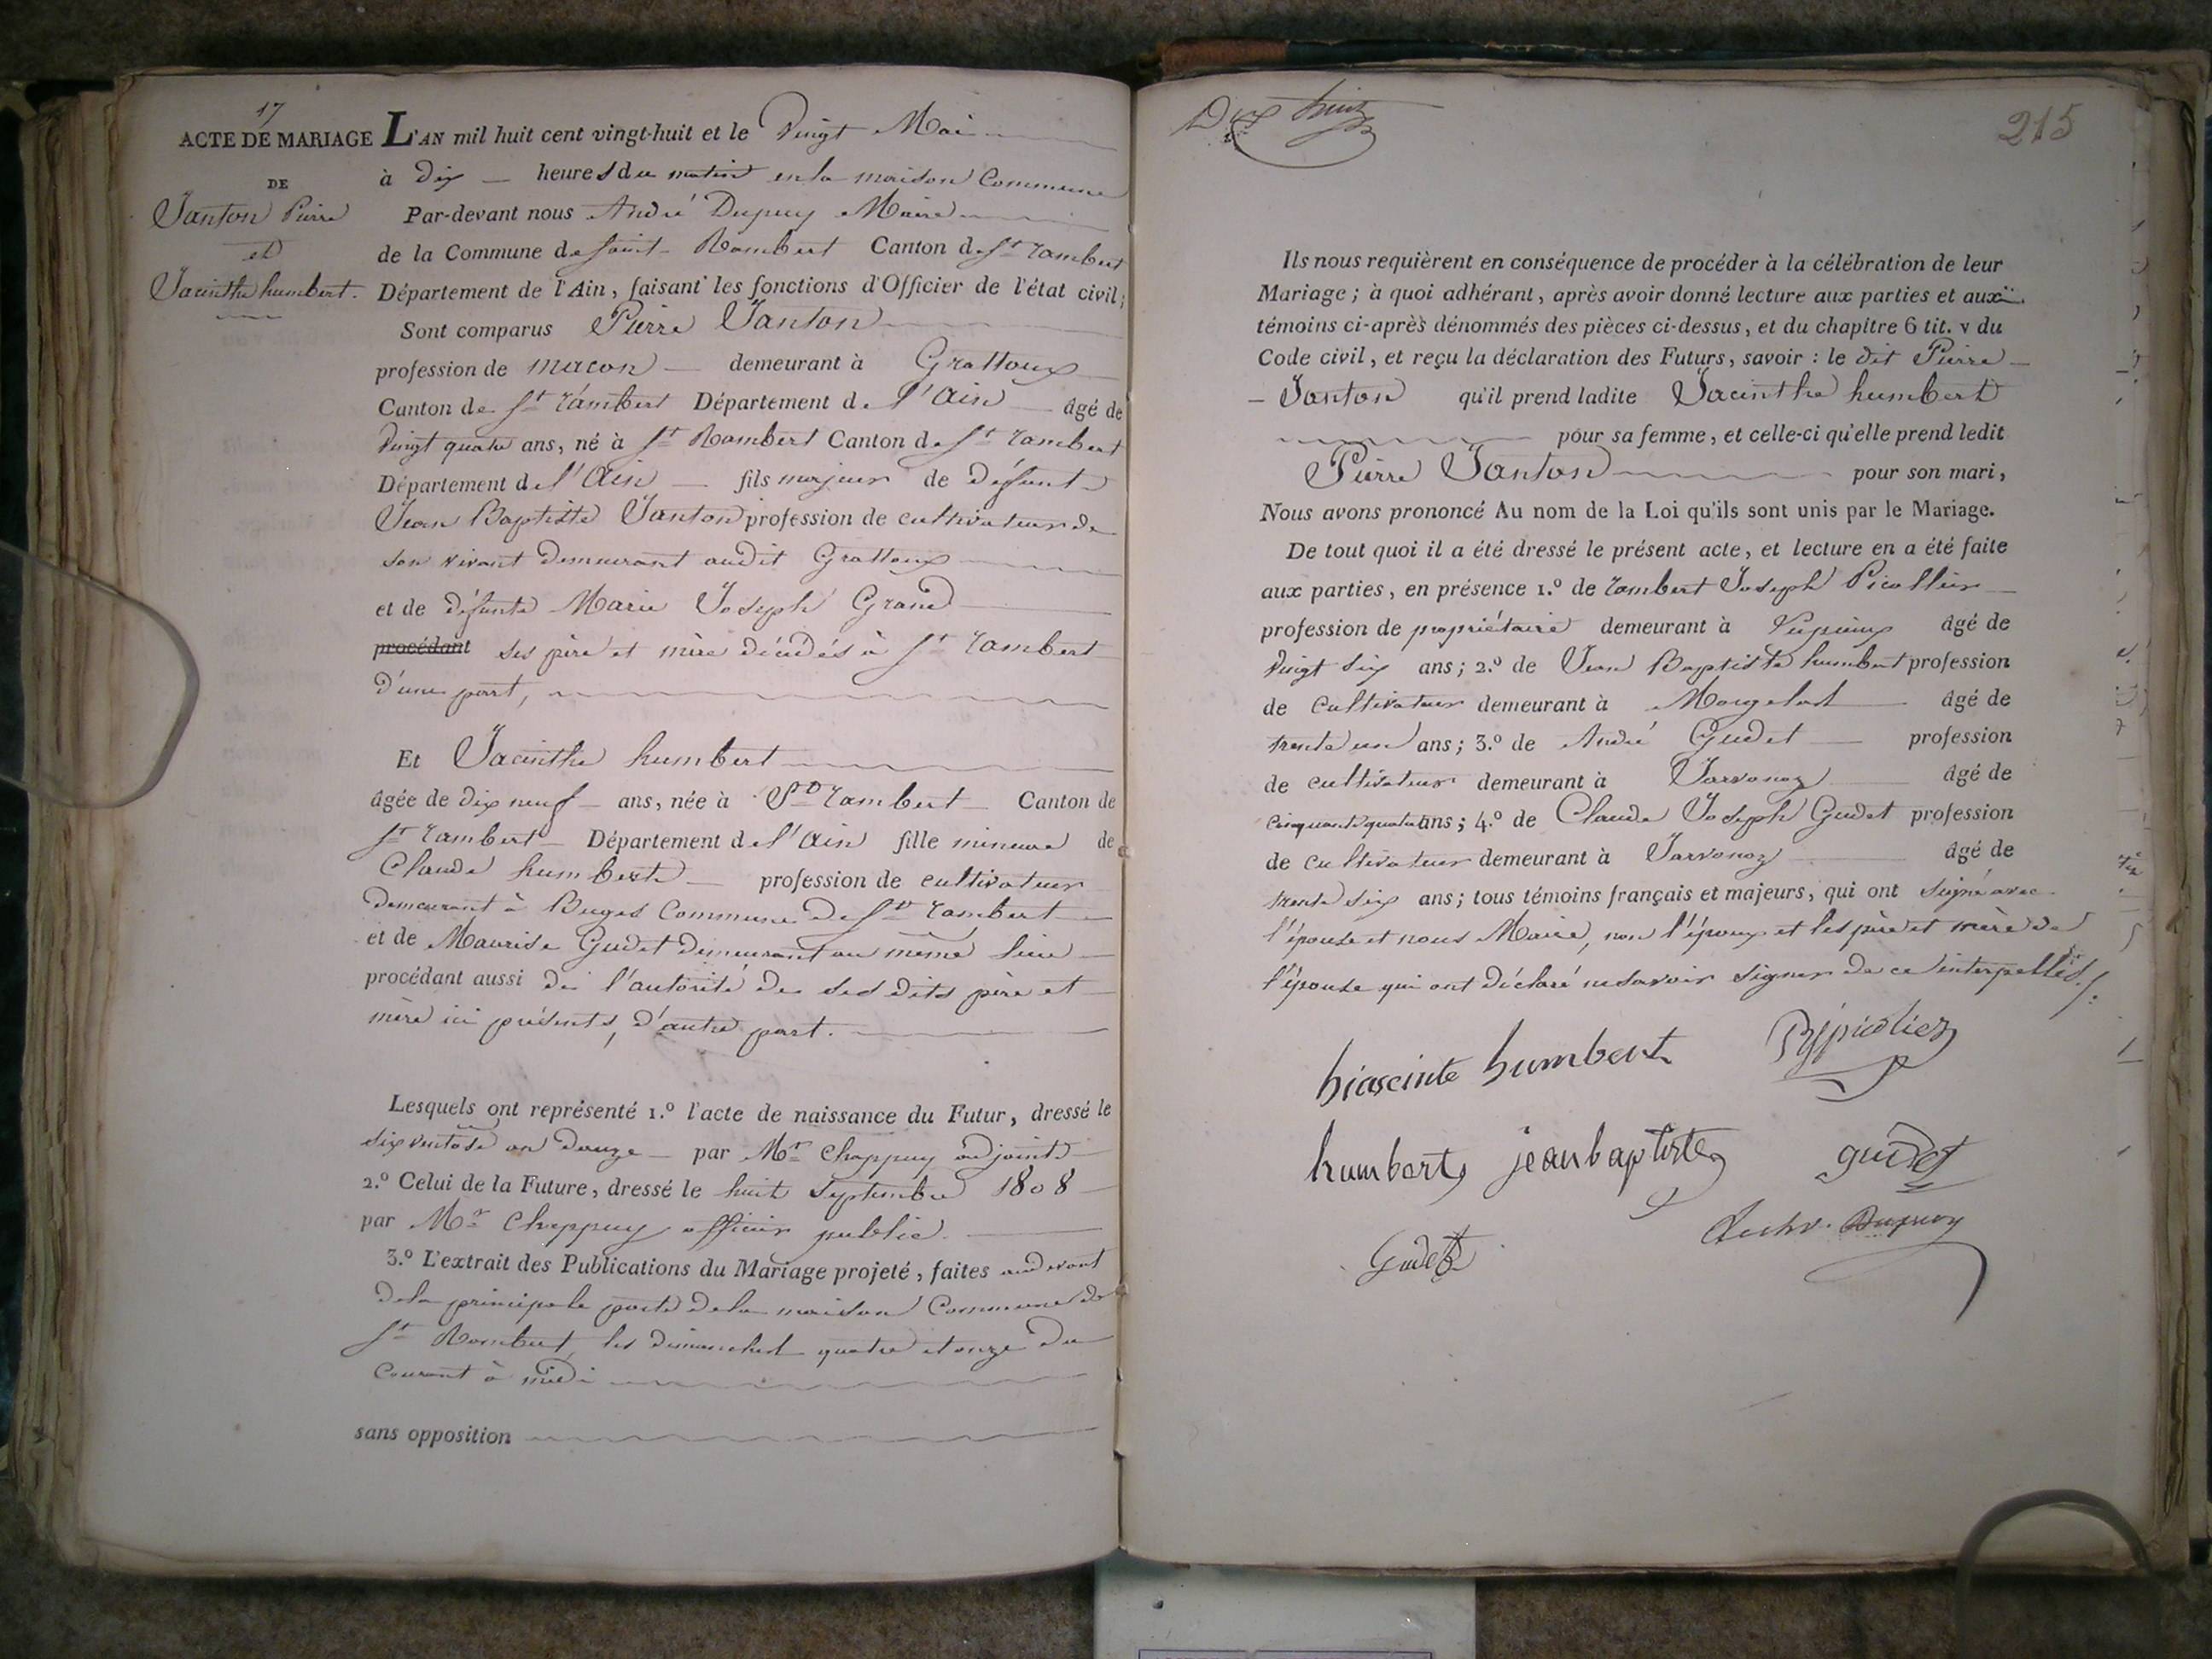 17
ACTE DE MARIAGE
DE
Janton Pierre
et
Jacinthe humbert.
L'AN mil huit cent vingt-huit et le Vingt Mai
à dix heures du matin en la maison Commune
Par-devant nous André Dupuy Maire
de la Commune de saint-Rambert Canton de St rambert
Département de l'Ain, faisant les fonctions d'Officier de l'état civil;
Sont comparus Pierre Janton
profession de macon demeurant à Grattoux
Canton de St rambert Département de l'Ain âgé de
Vingt quatre ans, né à St Rambert Canton de St rambert
Département de l'Ain fils majeur de défunt
Jean Baptiste Janton profession de cultivateur de
son vivant demeurant audit Grattoux
et de défunte Marie Joseph Grand
procédant ses père et mère décédés à St rambert
d'une part,
Et Jacinthe humbert
âgée de dix neuf ans, née à St rambert Canton de
St rambert Département de l'Ain fille mineure de
Claude humbert profession de cultivateur
demeurant à Buges Commune de St rambert
et de Maurise Gudet demeurant au même lieu
procédant aussi de l'autorité de ses dits père et
mère ici présents, d'autre part.
Lesquels ont représenté 1.º l'acte de naissance du Futur, dressé le
six ventose an douze par Mr Chappuy adjoint
2.º Celui de la Future, dressé le huit Septembre 1808
par Mr Chappuy officier public.
3.º L'extrait des Publications du Mariage projeté, faites au devant
de la principale porte de la maison Commune de
St Rambert, les dimanches quatre et onze du
Courant à midi
sans opposition
215
Ils nous requièrent en conséquence de procéder à la célébration de leur
Mariage; à quoi adhérant, après avoir donné lecture aux parties et aux
témoins ci-après dénommés des pièces ci-dessus, et du chapitre 6 tit. v du
Code civil, et reçu la déclaration des Futurs, savoir : le dit Pierre
Janton qu'il prend ladite Jacinthe humbert
pour sa femme, et celle-ci qu'elle prend ledit
Pierre Janton pour son mari,
Nous avons prononcé Au nom de la Loi qu'ils sont unis par le Mariage.
De tout quoi il a été dressé le présent acte, et lecture en a été faite
aux parties, en présence 1.º de rambert Joseph Picollier
profession de propriétaire demeurant à âgé de
Vingt six ans; 2.º de Jean Baptiste humbert profession
de Cultivateur demeurant à Morgelas âgé de
trente un ans; 3.º de André Gudet profession
de cultivateur demeurant à Javornoz âgé de
cinquante quatre ans; 4.º de Claude Joseph Gudet profession
de cultivateur demeurant à Javornoz âgé de
trente six ans; tous témoins français et majeurs, qui ont signé avec
l'épouse et nous Maire, non l'époux et les père et mère de
l'épouse qui ont déclaré ne savoir signer de ce interpellés./.
hiascinte humbert
humbert jean baptiste
gudet
Gudet
Dupuy